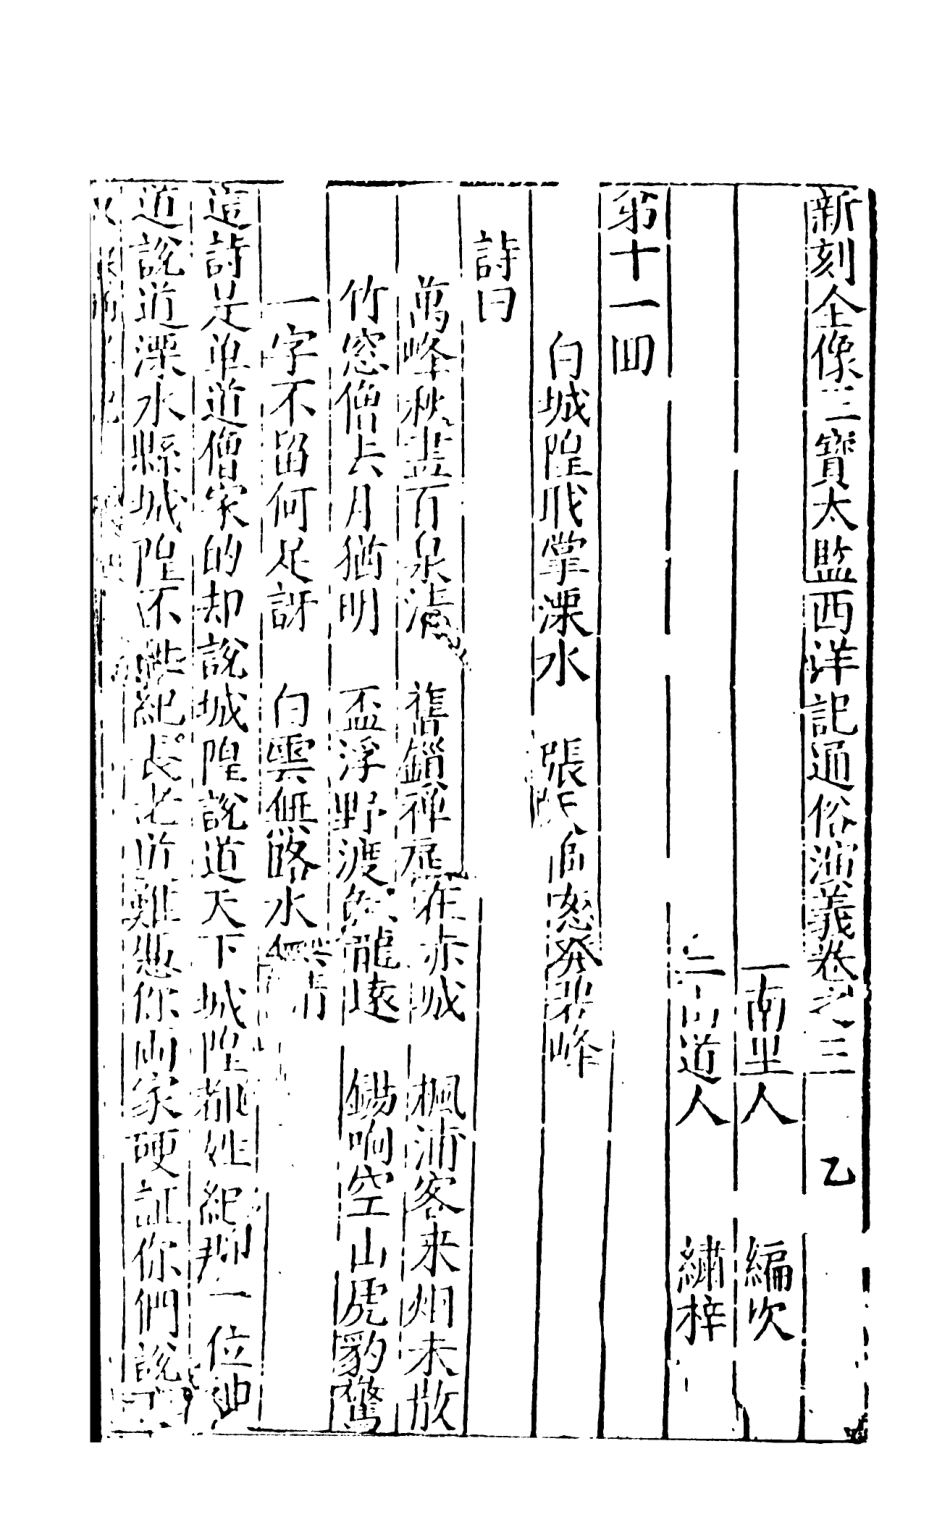 新刻全像三寶太監西洋記通俗演義卷之三　乙
二南里人　編次
三山道人　繡梓
第十一回
白城隍戕掌溧水　張天師怒發碧峰
詩曰
萬峰秋盡百泉清　舊鎖禪扉在赤城　楓浦客来烟未散
竹窓僧去月猶明　盃浮野渡魚龍遠　錫响空山虎豹驚
一字不留何足訝　白雲無路水無情
這詩是单道僧家的却說城隍說道天下城隍都姓紀那一位神
道說道溧水縣城隍不姓紀長老道難為你兩家硬証你們說